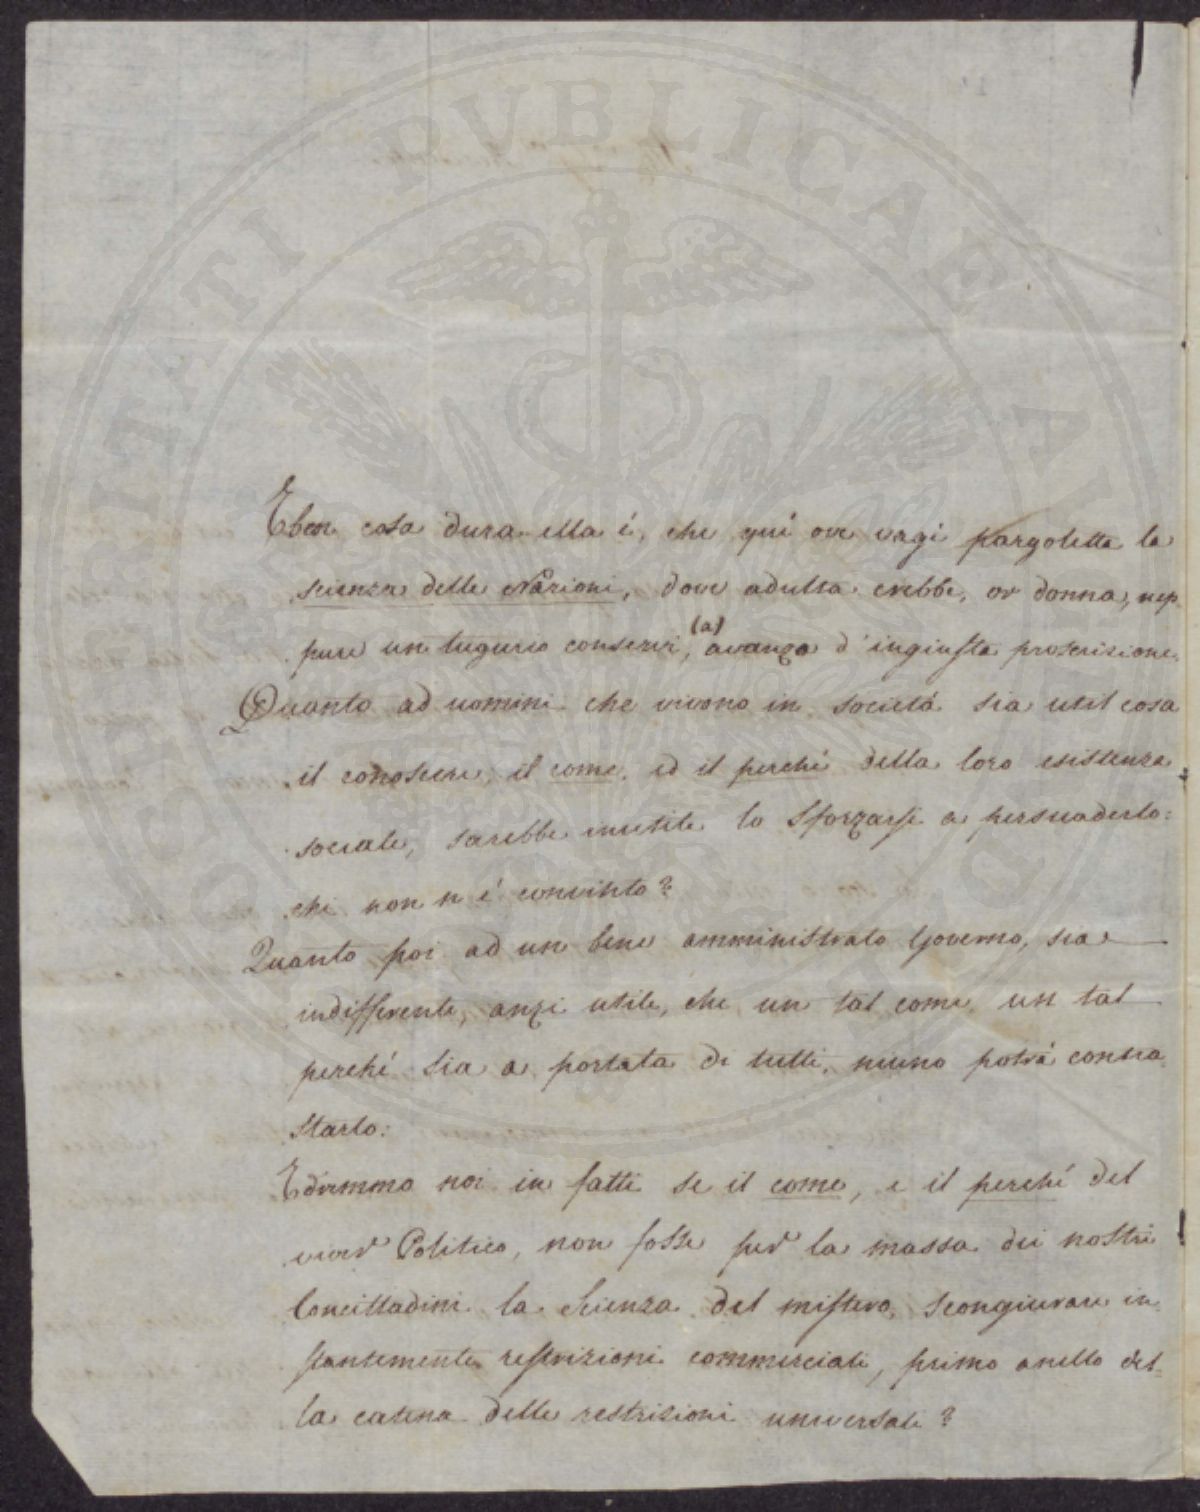 PROSPERITATI PUBLICAE AUGENDAE
Eben cosa dura ella é, che quí ove vagí pargoletta la
scienza delle Nazioni, dove adulta crebbe, or donna, nep
pure un tugurio conservi, (a) avanzo d'ingiusta proscrizione.
Quanto ad uomini che vivono in societá sia util cosa
il conoscere, il come, ed il perché della loro esistenza
sociale, sarebbe inutile lo sforzarsi a persuaderlo:
chi non n'é convinto?
Quanto poi ad un bene amministrato Governo, sia
indifferente, anzi utile, che un tal come, un tal
perché sia a portata di tutti, niuno potrá contra
starlo:
Edvemmo noi in fatti se il come, e il perché del
viver Politico, non fosse per la massa dei nostri
Concittadini la Scienza del mistero, scongiurare in
stantemente restrizioni commerciali, primo anello del
la catena delle restrizioni universali?